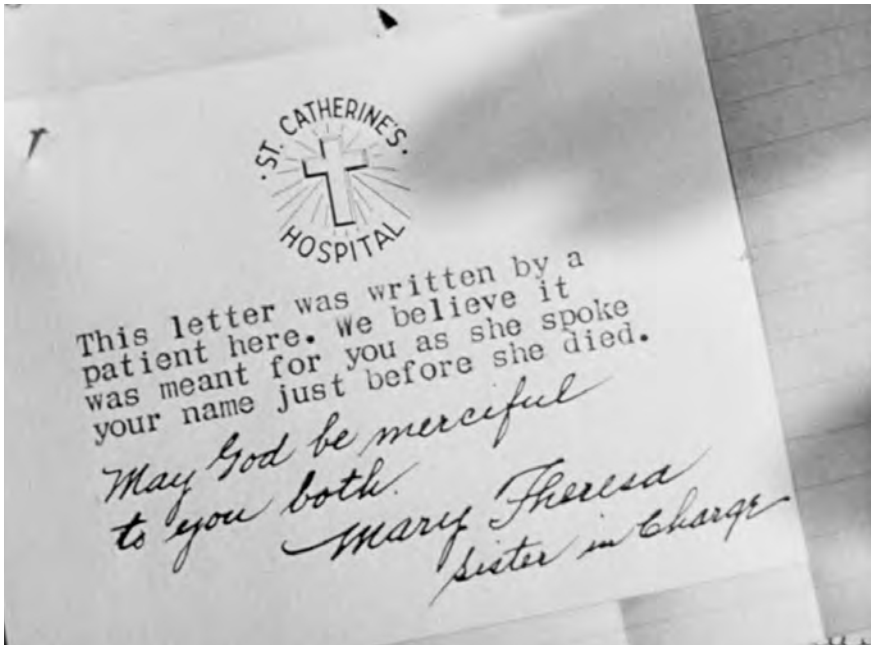 · ST. CATHERINE'S ·
HOSPITAL
This letter was written by a
patient here. We believe it
was meant for you as she spoke
your name just before she died.
May God be merciful
to you both.
Mary Theresa
Sister in Charge